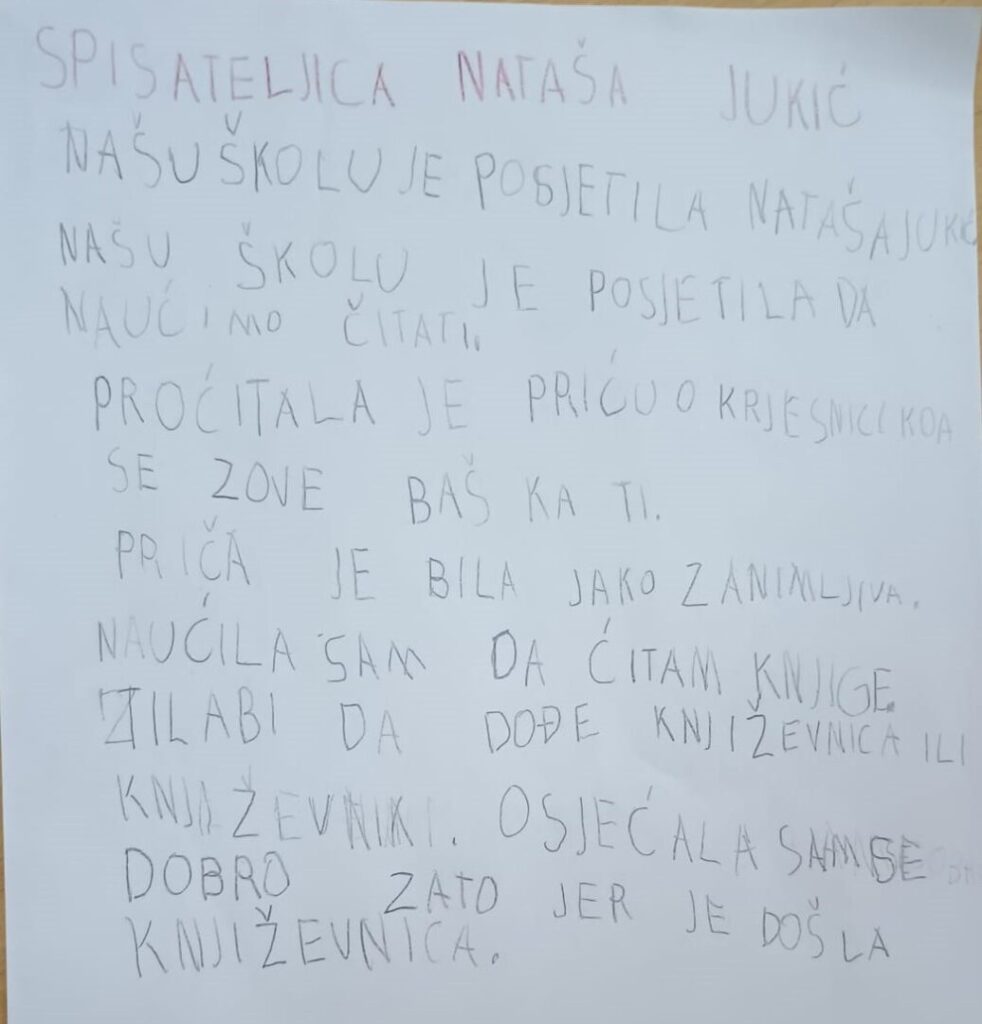 SPISATELJICA NATAŠA JUKIĆ
NAŠU ŠKOLU JE POSJETILA NATAŠA JUKIĆ
NAŠU ŠKOLU JE POSJETILA DA
NAUĆIMO ČITATI.
PROĆITALA JE PRIĆU O KRJESNICI KOA
SE ZOVE BAŠ KA TI.
PRIČA JE BILA JAKO ZANIMLJIVA.
NAUĆILA SAM DA ĆITAM KNJIGE
ILABI DA DOĐE KNJIŽEVNICA ILI
KNJIŽEVNIKI. OSJEĆALA SAM SE
DOBRO ZATO JER JE DOŠLA
KNJIŽEVNICA.